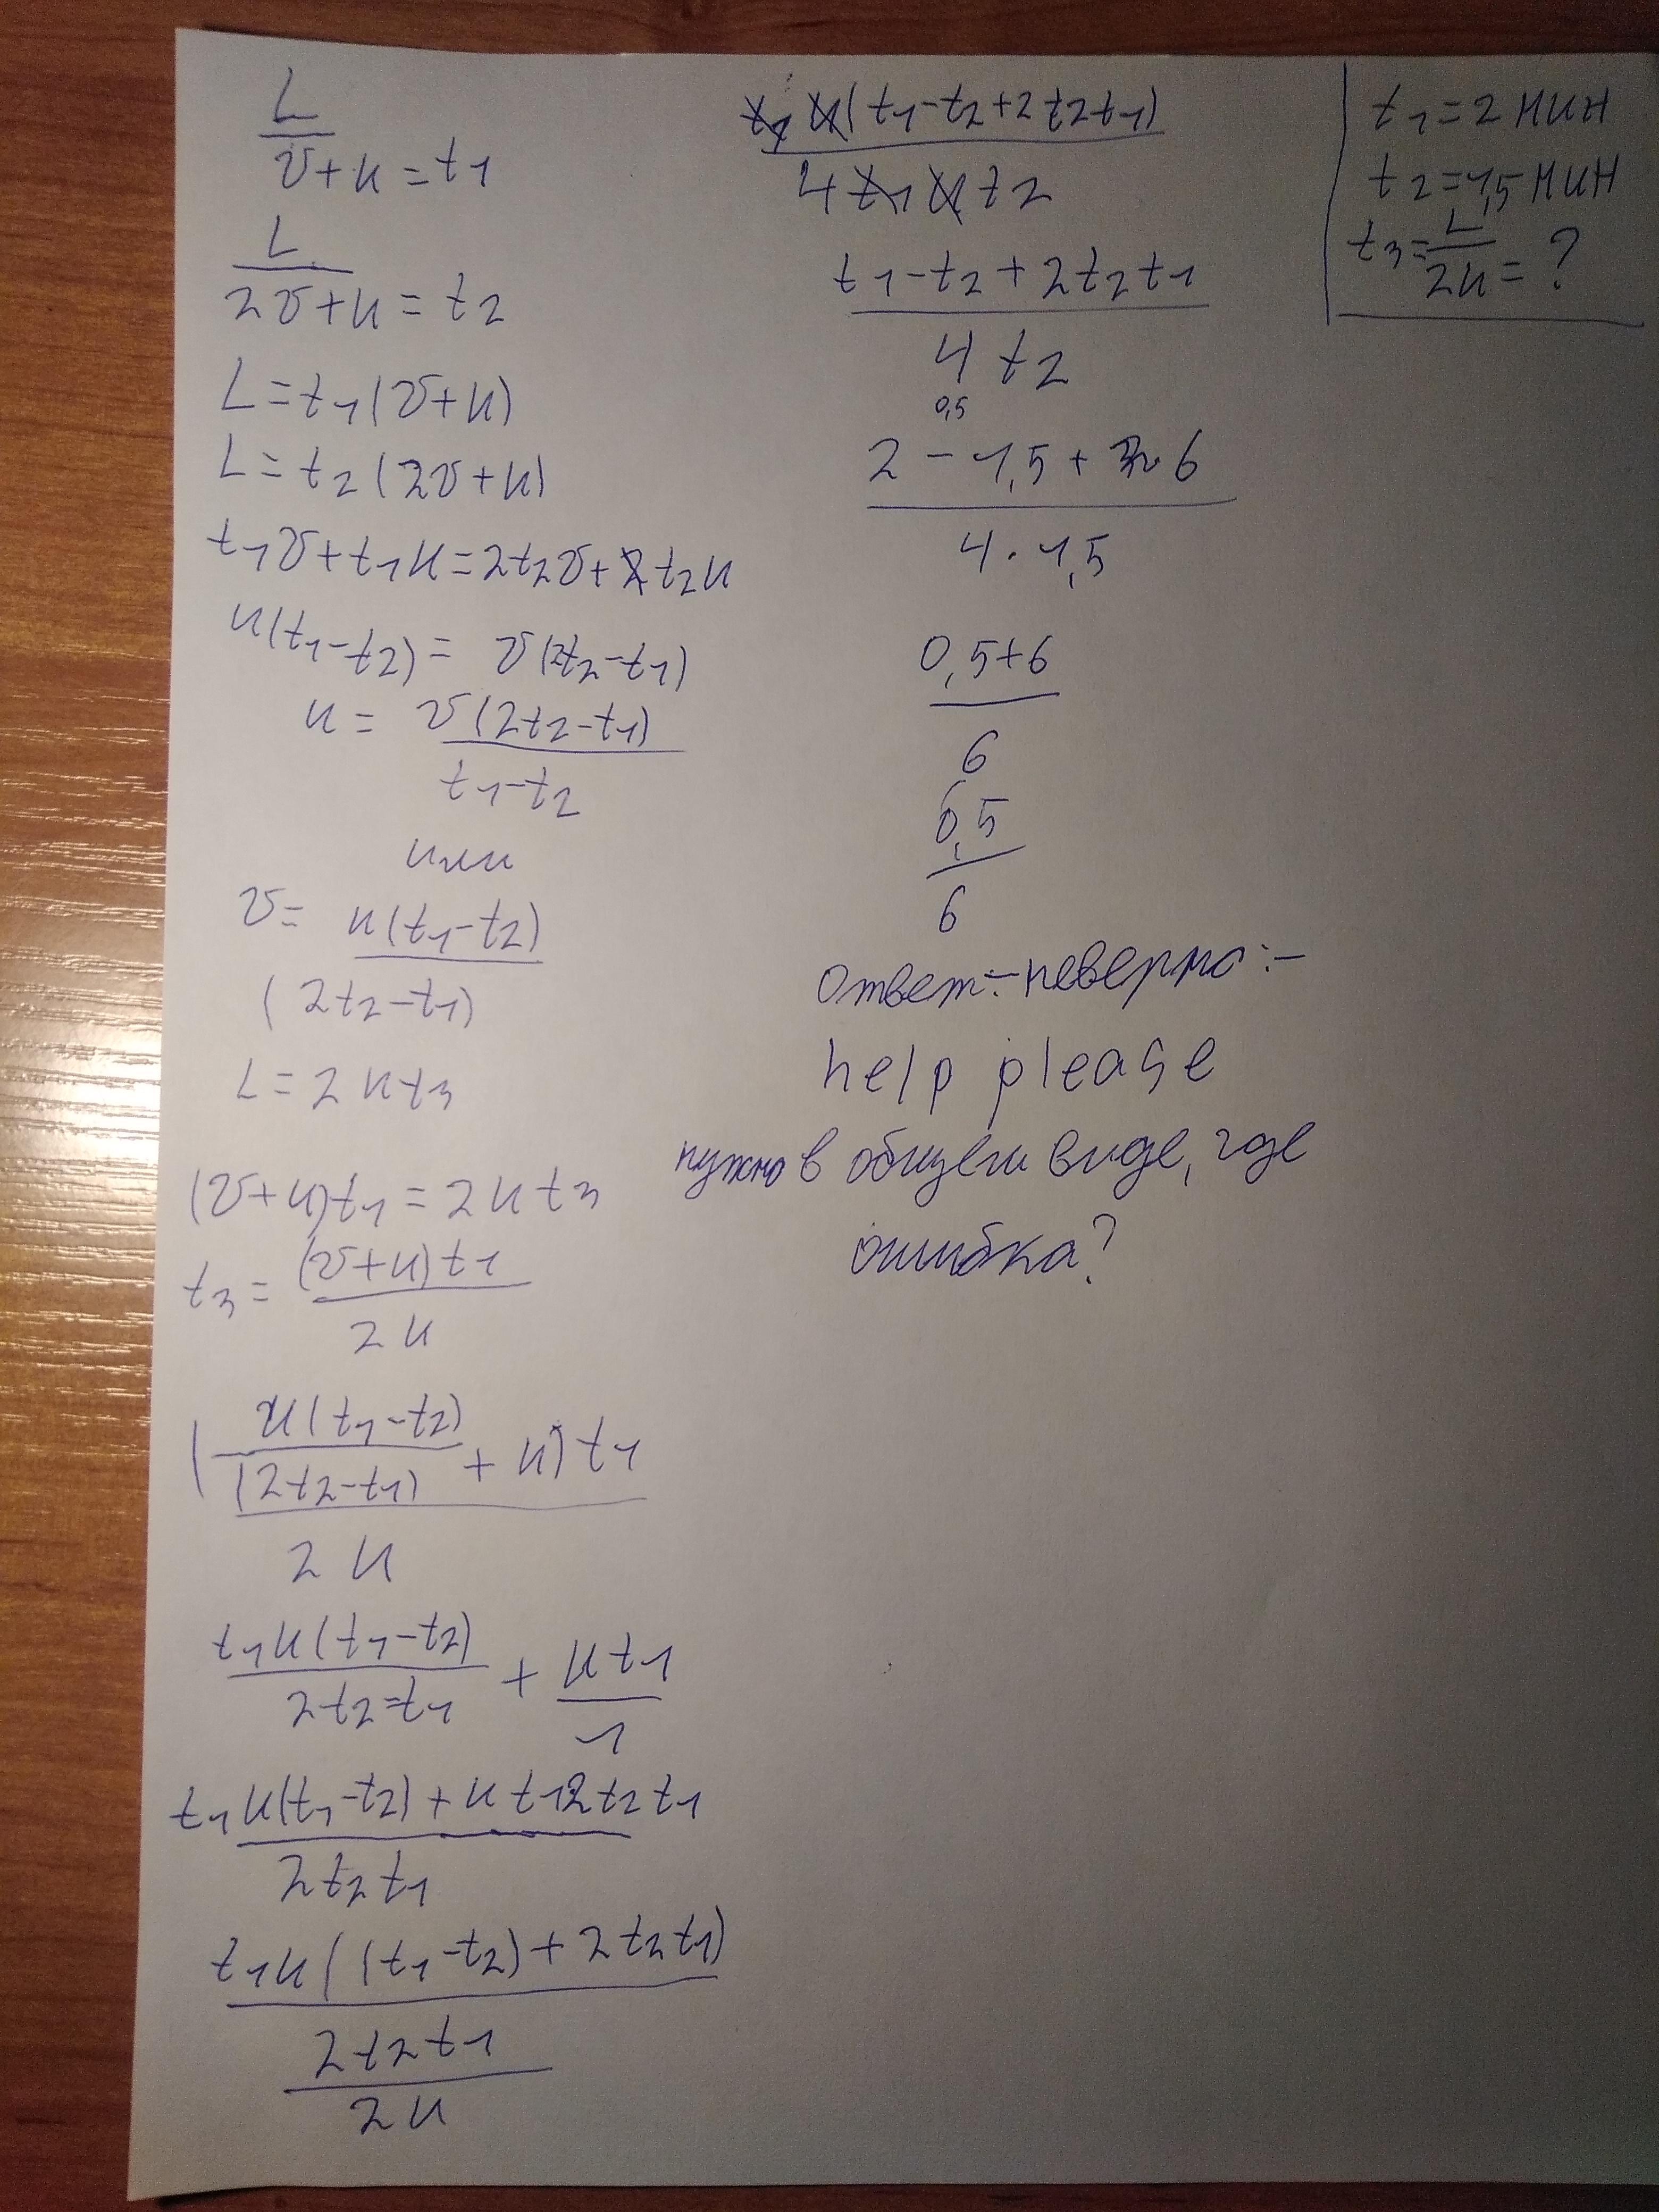 L
v+u = t1
L
2v+u = t2
L = t1(v+u)
L = t2(2v+u)
t1v+t1u=2t2v+t2u
u(t1-t2) = v(2t2-t1)
u = v(2t2-t1)
t1-t2
или
v= u(t1-t2)
(2t2-t1)
L=2ut3
(v+u)t1=2ut3
t3 = (v+u)t1
2u
(u(t1-t2)
(2t2-t1) + u)t1
2u
t1u(t1-t2) + ut1
2t2-t1 1
t1u(t1-t2)+ut12t2t1
2t2t1
t1u((t1-t2)+2t2t1)
2t2t1
2u
t1u(t1-t2+2t2t1)
4t1ut2
t1-t2+2t2t1
4t2
0,5
2-1,5+6
4·1,5
0,5+6
6
6,5
6
ответ:-неверно:-
help please
нужно в общем виде, где
ошибка?
t1=2 мин
t2=1,5 мин
t3=L
2u=?